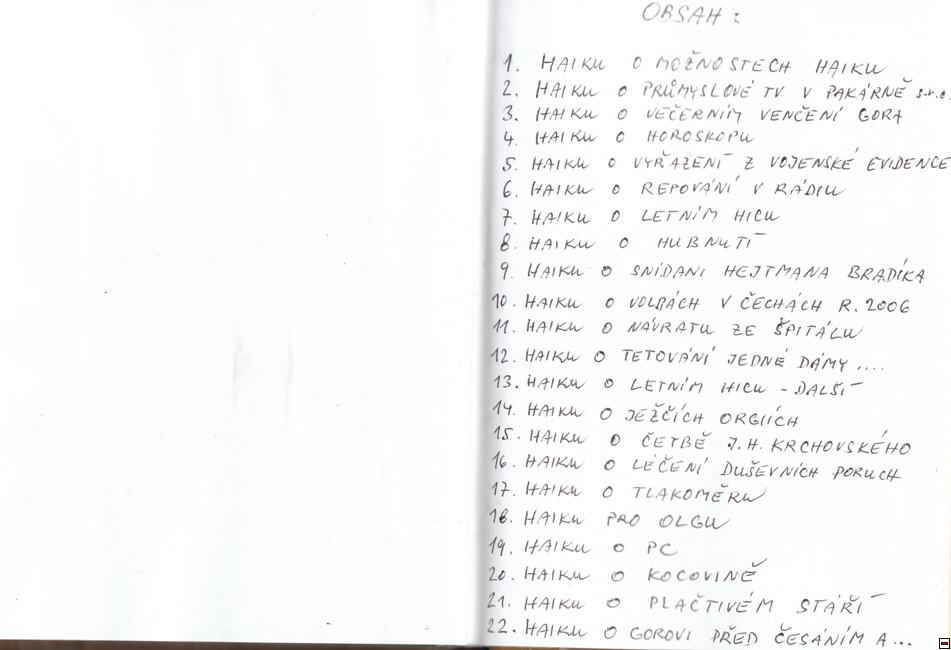 OBSAH :
1. HAIKU O MOŽNOSTECH HAIKU
2. HAIKU O PRŮMYSLOVÉ TV V PAKÁRNĚ s.r.o.
3. HAIKU O VEČERNÍM VENČENÍ GORA
4. HAIKU O HOROSKOPU
5. HAIKU O VYŘAZENÍ Z VOJENSKÉ EVIDENCE
6. HAIKU O REPOVÁNÍ V RÁDIU
7. HAIKU O LETNÍM HICU
8. HAIKU O HUBNUTÍ
9. HAIKU O SNÍDANI HEJTMANA BRADÍKA
10. HAIKU O VOLBÁCH V ČECHÁCH R. 2006
11. HAIKU O NÁVRATU ZE ŠPITÁLU
12. HAIKU O TETOVÁNÍ JEDNÉ DÁMY ....
13. HAIKU O LETNÍM HICU - DALŠÍ
14. HAIKU O JEŽČÍCH ORGIÍCH
15. HAIKU O ČETBĚ J.H. KRCHOVSKÉHO
16. HAIKU O LÉČENÍ DUŠEVNÍCH PORUCH
17. HAIKU O TLAKOMĚRU
18. HAIKU PRO OLGU
19. HAIKU O PC
20. HAIKU O KOCOVINĚ
21. HAIKU O PLAČTIVÉM STÁŘÍ
22. HAIKU O GOROVI PŘED ČESÁNÍM A...